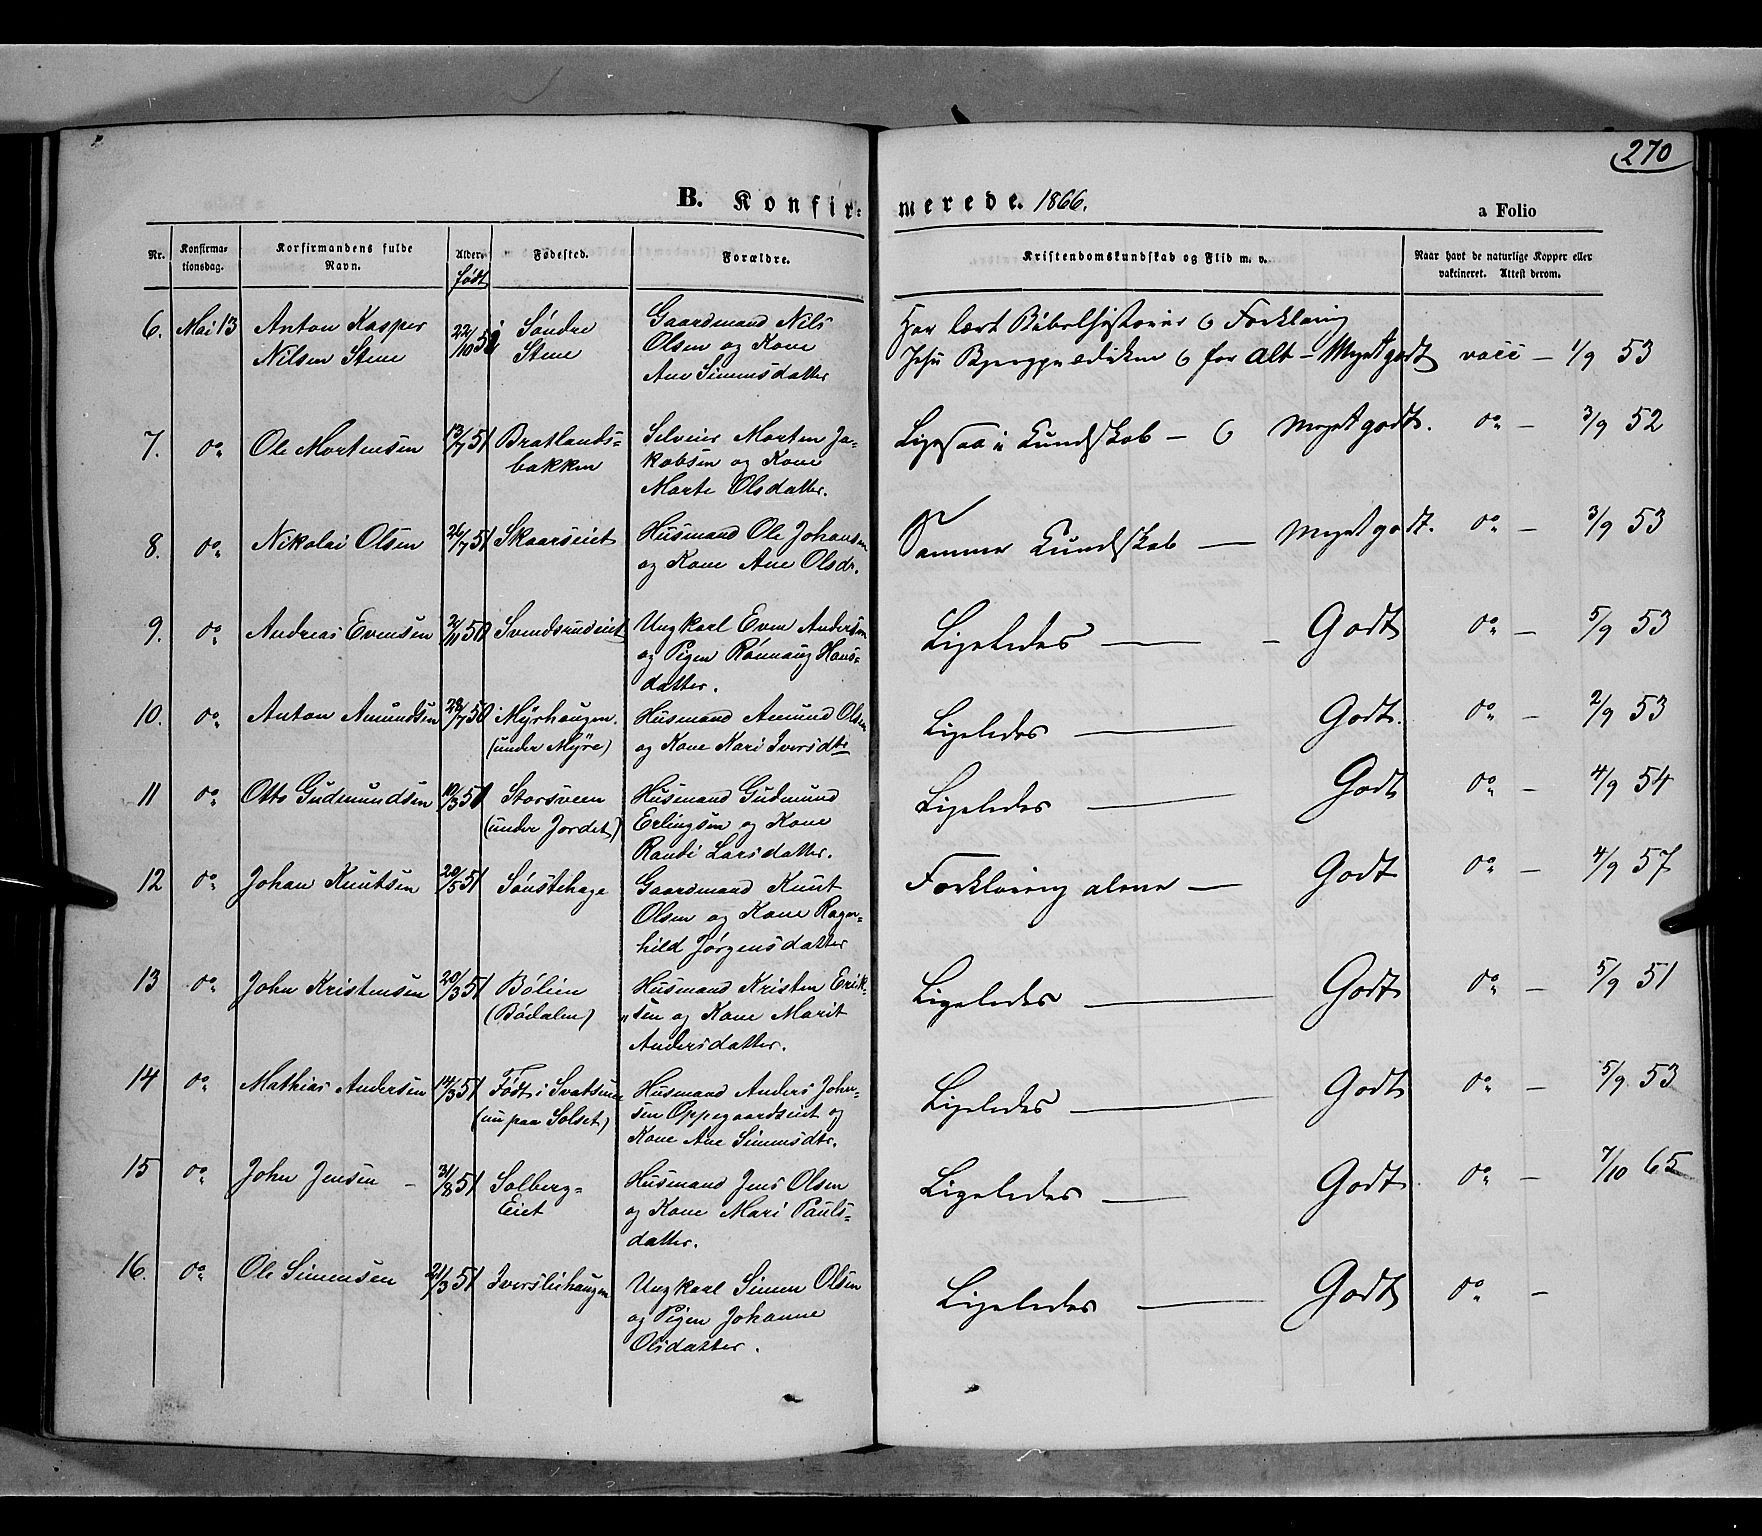 270
B. Konfir-
merede. 1866.
a Folio
Nr.
Konfirma-
tionsdag.
Korfirmandens fulde
Navn.
Alder.
født
Fødested.
Forældre.
Kristendomskundskab og Flid m. v.
Naar havt de naturlige Kopper eller
vaktineret. Attest derom.
6. Mai 13 Anton Kasper 22/10 51 Söndre Gaardmand Nils Har lært Bibelhistorier & Forklaring
Nilsen Stene Stene Olsen og Kone Jesu Bjergprædiken & for Alt – Meget godt vacc – 1/9 53
Ane Simensdatter
7. do Ole Mortensen 13/7 51 Bratlands= Selveier Morten Ja- Ligesaa i Kundskab – & Meget godt. do – 3/9 52
bakken kobsen og Kone
Marte Olsdatter.
8. do Nikolai Olsen 26/7 51 Skaarseiet Husmand Ole Johansen Samme Kundskab — Meget godt. do – 3/9 53
og Kone Ane Olsdr.
9. do Andreas Evensen 2/11 50 Svendsrudeiet Ungkarl Even Andersen Ligeledes — Godt do – 5/9 53
og Pigen Rönnaug Hans-
datter.
10. do Anton Amundsen 28/7 50 Myrhaugen. Husmand Amund Olsen Ligeledes — Godt. do – 2/9 53
(under Myre) og Kone Kari Iversdtr
11 do Otto Gudmundsen 19/3 51 Storsveen Husmand Gudmund Ligeledes — Godt do – 4/9 54
(under Jordet) Erlingsen og Kone
Randi Larsdatter.
12 do Johan Knutsen 20/5 51 Sönstehage Gaardmand Knut Forklaring alene — Godt do – 4/9 57
Olsen og Kone Ragn-
hild Jørgensdatter
13 do John Kristensen 20/3 51 Bölien Husmand Kristen Erik- Ligeledes — Godt do – 5/9 51
(Bödalen) "sen og Kone Marit
Andersdatter.
14 do Mathias Andersen 14/3 51 Födt i Svatsum Husmand Anders John- Ligeledes — Godt do – 5/9 53
(nu paa Solset) sen Oppegaardseiet og
Kone Ane Simensdtr.
15 do John Jensen – 31/8 51 Solberg= Husmand Jens Olsen Ligeledes — Godt do – 7/10 65
Eiet og Kone Mari Pauls=
datter.
16. do Ole Simensen 21/3 51 Iverslihaugen Ungkarl Simen Olsen Ligeledes — Godt do –
og Pigen Johanne
Olsdatter.